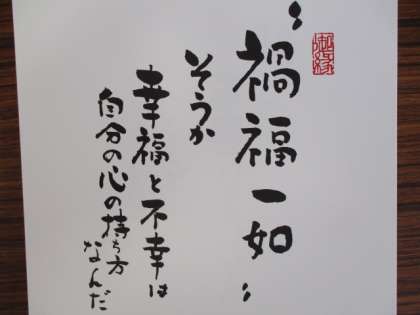 〝禍福一如〟
そうか
幸福と不幸は
自分の心の持ち方
なんだ
御縁